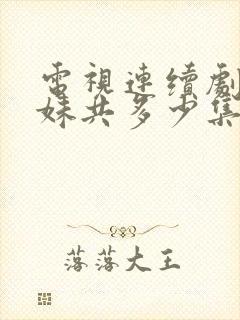 電視連續劇
妹共多少集
落落大王